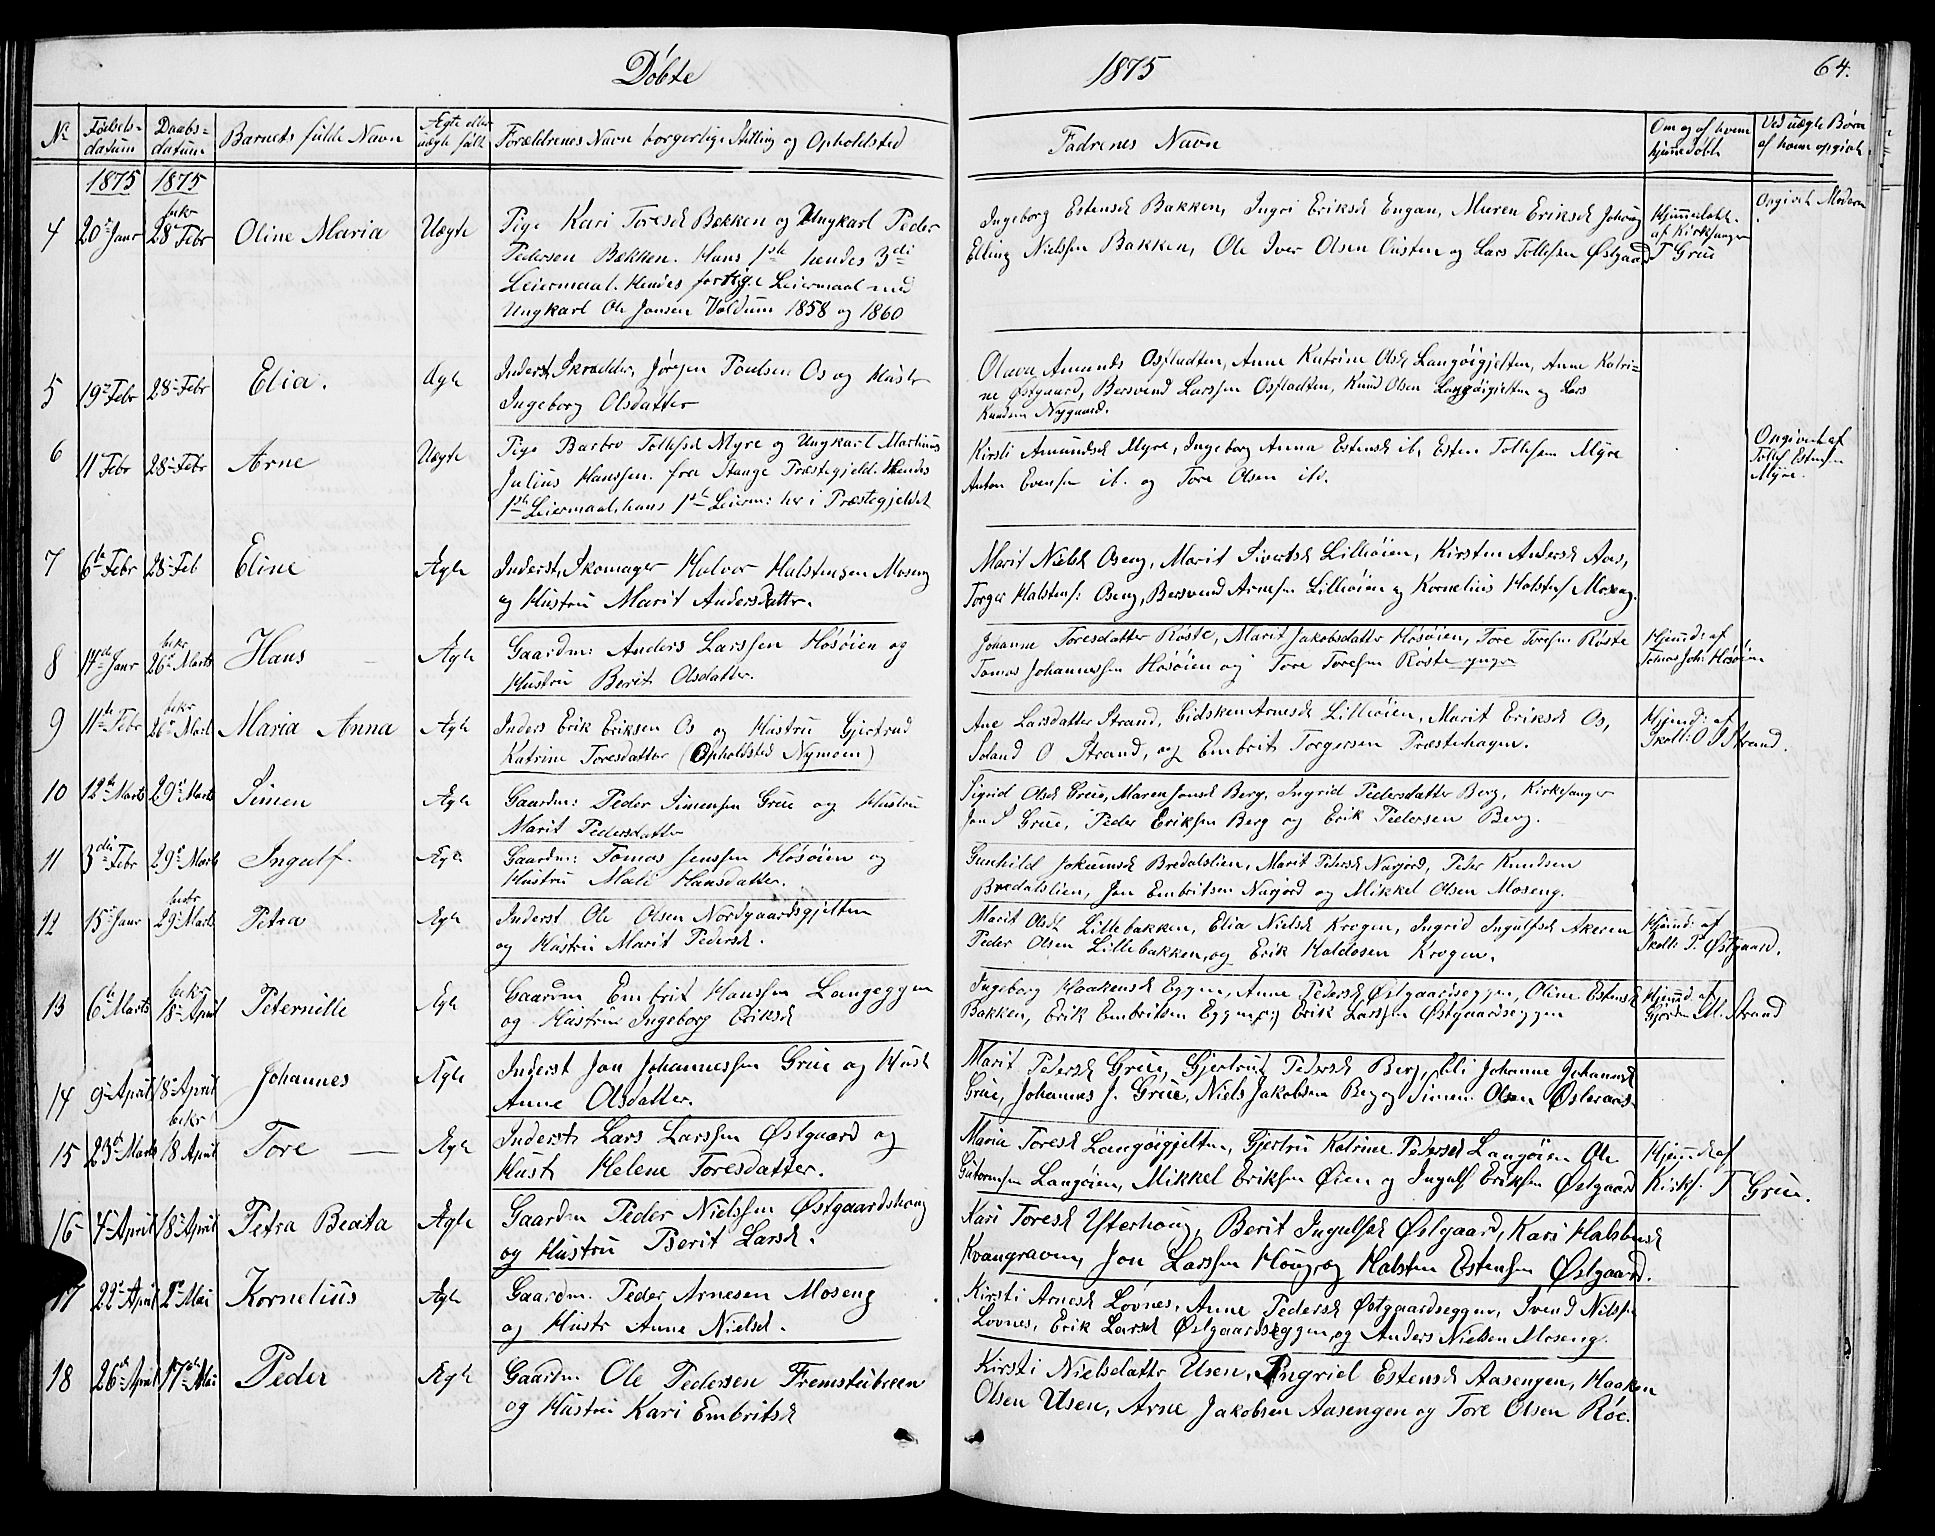 Döbte 1875 64.
No
Fødsels-
datum
Daabs-
datum
Barnets fulde Navn
Ægte eller
uægte født
Forældrenes Navn borgerlige Stilling og Opholdsted
Fadrenes Navn
Om og af hvem
hjemmedøbt
Ved uægte Børn
af hvem opgivet
1875 1875
4 20de Janr bekr 28de Febr Oline Maria Uægte
Pige Kari Toresd Bekken og Ungkarl Peder
Pedersen Bekken. Hans 1ste hendes 3die
Leiermaal. Hendes forrige Leiermaal med
Ungkarl Ole Jonsen Voldum 1858 og 1860
Ingeborg Estensd Bakken, Ingri Eriksd Engan, Maren Eriksd
Elling Nielssen Bakken, Ole Iver Olsen Custen og Lars Tollefsen Østgaard
Hjemmedøbt
af Kirkesanger
T Grue
Opgivet Moderen
5 19de Febr 28de Febr Elia. Ægte
Inderst, Skrædder, Jörgen Poulsen Os og Hustr
Ingeborg Olsdatter
Olava Amunds Osfladten, Anne Katrine Olsd Langöigjelten, Anne Katri-
ne Østgaard, Bersvend Larssen Osfladten, Knud Olsen Langöigjelten og Lars
Knudsen Nygaard.
6 11 Febr 28de Febr Arne Uægte
Pige Barbro Tollefsd Myre og Ungkarl Martinus
Julius Hanssen. fra Stange Præstegjeld. Hendes
1ste Leiermaal, hans 1ste Leierm: her i Præstegjeldet
Kirsti Amundsd Myre, Ingeborg Anna Estensd ib, Esten Tollefsen Myre
Anton Evensen ib. og Tore Olsen ibd.
Opgivet af
Tollef Estensen
Myre.
7 6te Febr 28de Feb Eline Ægte
Inderst, Skomager Halvor Halstensen Moseng
og Hustru Marit Andersdattr.
Marit Nielsd Oseng, Marit Sivertsd Lilleöien, Kirsten Andersd Aas,
Torger Halstens: Oseng, Bersvend Arnesen Lilleöien og Kornelius Halstens Moseng.
8 17de Janr bekr 26de Marts Hans Ægte
Gaardm: Anders Larssen Hösöien og
Hustru Berit Olsdatter.
Johanne Toresdatter Röste, Marit Jakobsdatter Hösöien, Tore Toresen Röste
Tomas Johannessen Hösöien og Tore Toresen Röste yngre
Hjemd: af
Tomas Joh: Hösöien
9 11te Febr bekr 26de Marts Maria Anna Ægte
Inders Erik Eriksen Os og Hustru Gjertrud
Katrine Toresdatter (Opholdsted Nymoen)
Ane Larsdatter Strand, Eidsken Arnesd Lilleöien, Marit Eriksd Os,
Soland O Strand, og Embrit Torgersen Præstehagen.
Hjemd: af
Skoll: O S Strand.
10 12te Marts 29de Marts Simen Ægte
Gaardm: Peder Simensen Grue og Hustru
Marit Pedersdatter
Sigrid Olsd Grue, Maren Jonsd Berg, Ingrid Pedersdatter Berg, Kirkesanger
Jon S Grue, Peder Eriksen Berg og Erik Pedersen Berg.
11 3die Febr 29de Marts Ingulf. Ægte
Gaardm: Tomas Jenssen Hösöien og
Hustru Mali Hansdatter.
Gunhild Jokumsd Bredalslien, Marit Pedersd Narjord, Peder Knudsen
Bredalslien, Jon Embritsen Narjord og Mikkel Olsen Moseng.
12 15de Janr bekr 29de Marts Petra Ægte
Inderst Ole Olsen Nordgaardsgjelten
og Hustru Marit Pedersd.
Marit Olsd Lillebakken, Elia Nielsd Krogen, Ingrid Ingulfsd Akeren
Peder Olsen Lillebakken, og Erik Haldosen Krogen.
Hjemd: af
Skoll: P. Østgaard.
13 6te Marts bekr 18de April Peternille Ægte
Gaardm Embrit Hanssen Langeggen
og Hustru Ingeborg Eriksd
Ingeborg Haakensd Eggen, Anne Pedersd Østgaardseggen, Oline Estensd
Bakken, Erik Embritsen Eggen og Erik Larssen Østgaardseggen
Hjemd: af
Gjorden M. Strand
14 9de April 18de April Johannes Ægte
Inderst Jon Johannessen Grue og Hust
Anne Olsdatter.
Marit Pedersd Grue, Gjertrud Pedersd Berg, Eli Johanne Johannesd
Grue, Johannes J. Grue, Niels Jakobsen Berg og Simen Olsen Østeraas.
15 23de Marts bekr 18 April Tore Ægte
Inderst Lars Larssen Østgaard og
Hust Helene Toresdatter.
Maria Toresd Langöigjelten, Gjertru Katrine Pedersd Langöien Ole
Gutormsen Langöien, Mikkel Eriksen Öien og Ingulf Eriksen Østgaard
Hjemd af
Kirks. T Grue.
16 4de April 18de April Petra Beata Ægte
Gaardm Peder Nielssen Østgaardshaug
og Hustru Berit Larsd.
Kari Toresd Ytterhaug, Berit Ingulfsd Østgaard, Kari Halstensd
Kvangraven, Jon Larssen Houg, og Halsten Estensen Østgaard.
17 22de April 2de Mai Kornelius Ægte
Gaardm. Peder Arnesen Moseng
og Hustr Anne Nielsd.
Kirsti Arnesd Lovnes, Anne Pedersd Østgaardseggen, Svend Nilssen
Lovnes, Erik Larsen Østgaardseggen, og Anders Nielsen Moseng.
18 26de April 17de Mai Peder Ægte
Gaardm Ole Pedersen Fremstubreen
og Hustru Kari Embritsd
Kirsti Nielsdattr Usen, Ingried Estensd Aasengen, Haaken
Olsen Usen, Arne Jakobsen Aasengen og Tore Olsen Röe.